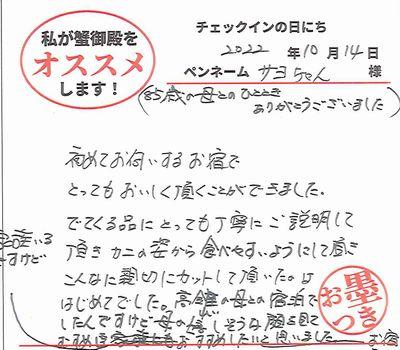 私が蟹御殿を
オススメ
します！
チェックインの日にち
2022 年 10 月 14 日
ペンネーム サヨちゃん 様
(85歳の母とのひととき
ありがとうございました)
初めてお伺いするお宿で
とってもおいしく頂くことができました。
でてくる品にとっても丁寧にご説明して
頂きカニの姿から食べやすいようにして
こんなに親切にカットして頂いたのは
はじめてでした。高齢の母との宿泊で
したんですけど母の嬉しそうな顔を見て
おすすめしたいと思いました
お宿
すけど
お墨つき